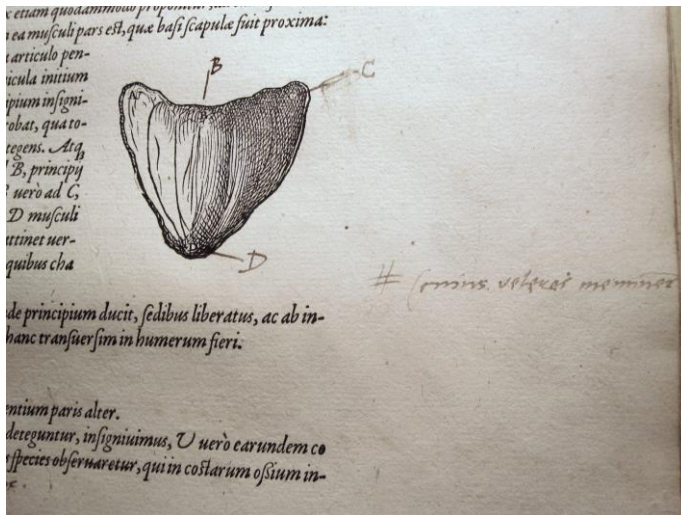 etiam quodammodo
ea musculi pars est, quæ basi scapulæ fuit proxima:
articulo pen-
icula initium
ipium insigni-
robat, qua to-
tegens. Atq
B, principij
uerò ad C,
D musculi
attinet uer-
quibus cha
A
B
C
D
# veteres
de principium ducit, sedibus liberatus, ac ab in-
hanc transuersim in humerum fieri.
entium paris alter.
deteguntur, insigniuimus, V uerò earundem co
species obseruaretur, qui in costarum ossium in-